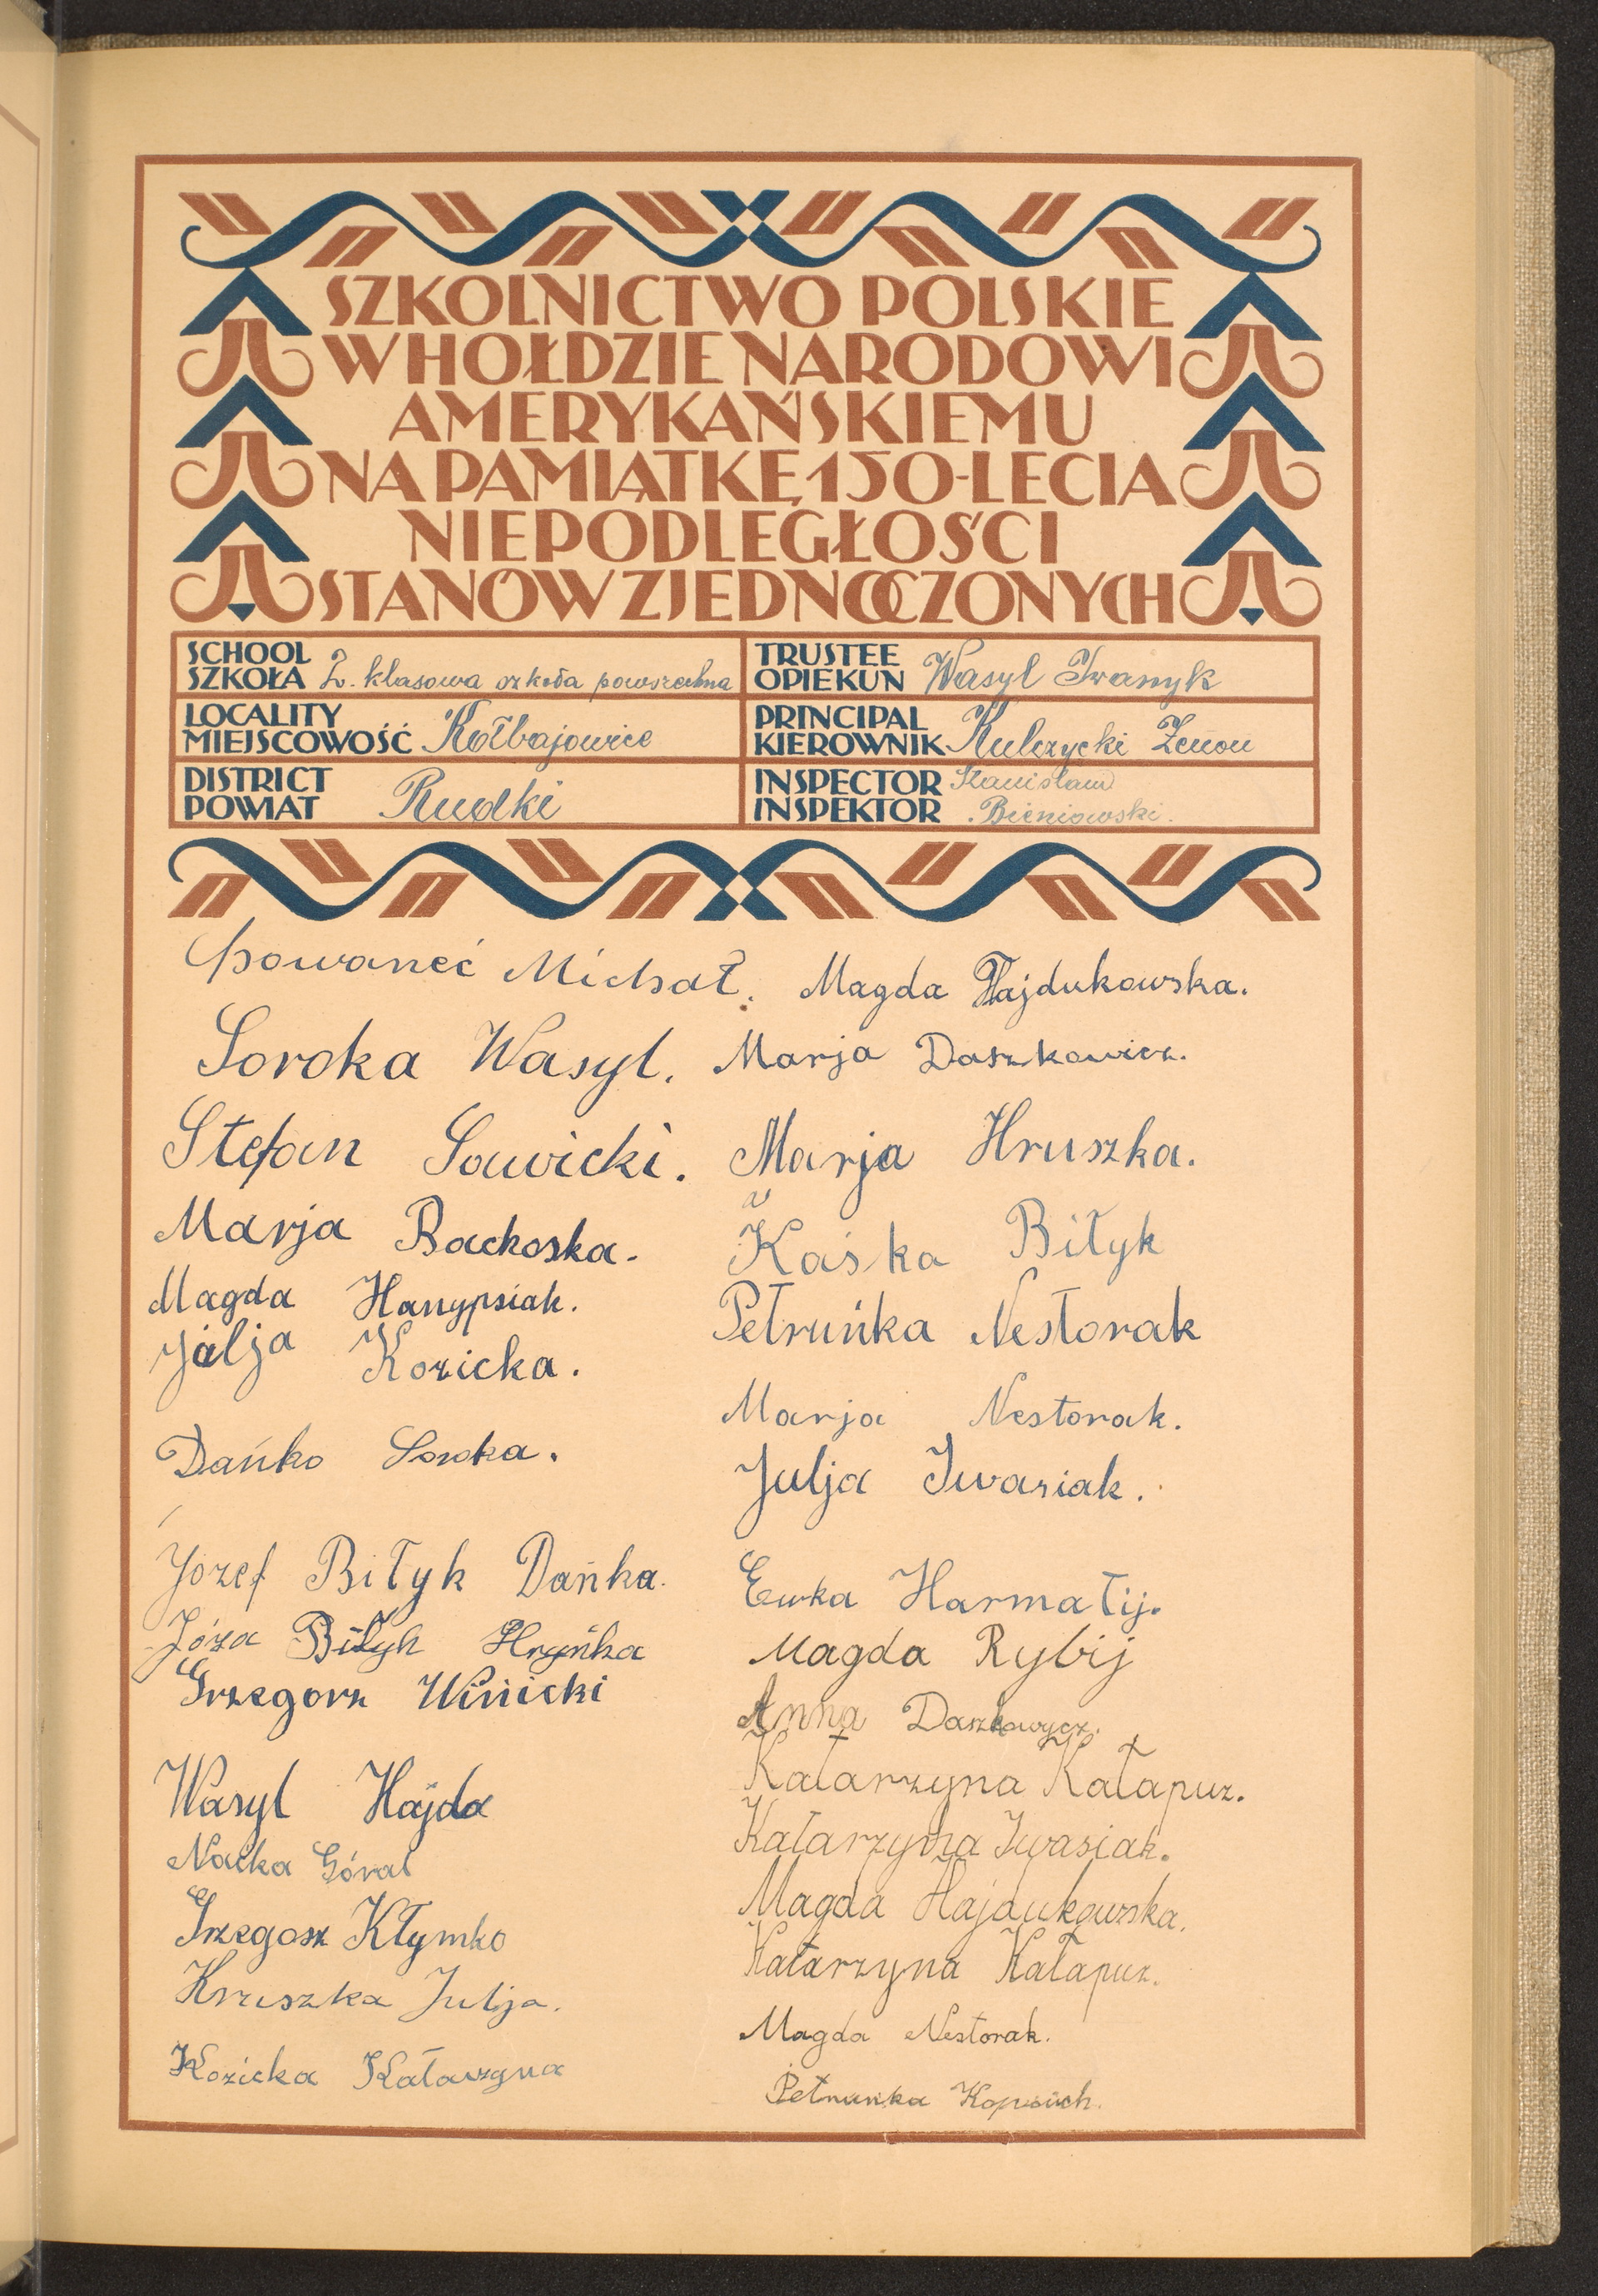 SZKOLNICTWO POLSKIE
W HOŁDZIE NARODOWI
AMERYKAŃSKIEMU
NA PAMIĄTKĘ 150-LECIA
NIEPODLEGŁOŚCI
STANÓW ZJEDNOCZONYCH
SCHOOL
SZKOŁA 2. klasowa szkoła powszechna
LOCALITY
MIEJSCOWOŚĆ Kołbajowice
DISTRICT
POWIAT Rudki
TRUSTEE
OPIEKUN Wasyl Iwanyk
PRINCIPAL
KIEROWNIK Kulczycki Zenon
INSPECTOR Stanisław
INSPEKTOR Bieniowski.
Michał.
Soroka Wasyl.
Stefan Sawicki.
Marja Backoska.
Magda Hanypsiak.
Julja Kozicka.
Dańko Soroka.
Józef Biłyk Dańka.
Józa Biłyk Hryńka
Grzegorz Winicki
Wasyl Hajda
Naćka Góral
Grzegosz Kłymko
Hruszka Julja.
Kozicka Katarzyna
Magda Hajdukowska.
Marja Daszkowicz.
Marja Hruszka.
Kaśka Biłyk
Petruńka Nestorak
Marja Nestorak.
Julja Iwasiak.
Ewka Harmatij.
Magda Rybij
Anna Daszkowycz.
Katarzyna Kałapuz.
Katarzyna Iwasiak.
Magda Hajdukowska.
Katarzyna Kałapuz.
Magda Nestorak.
Petrunka